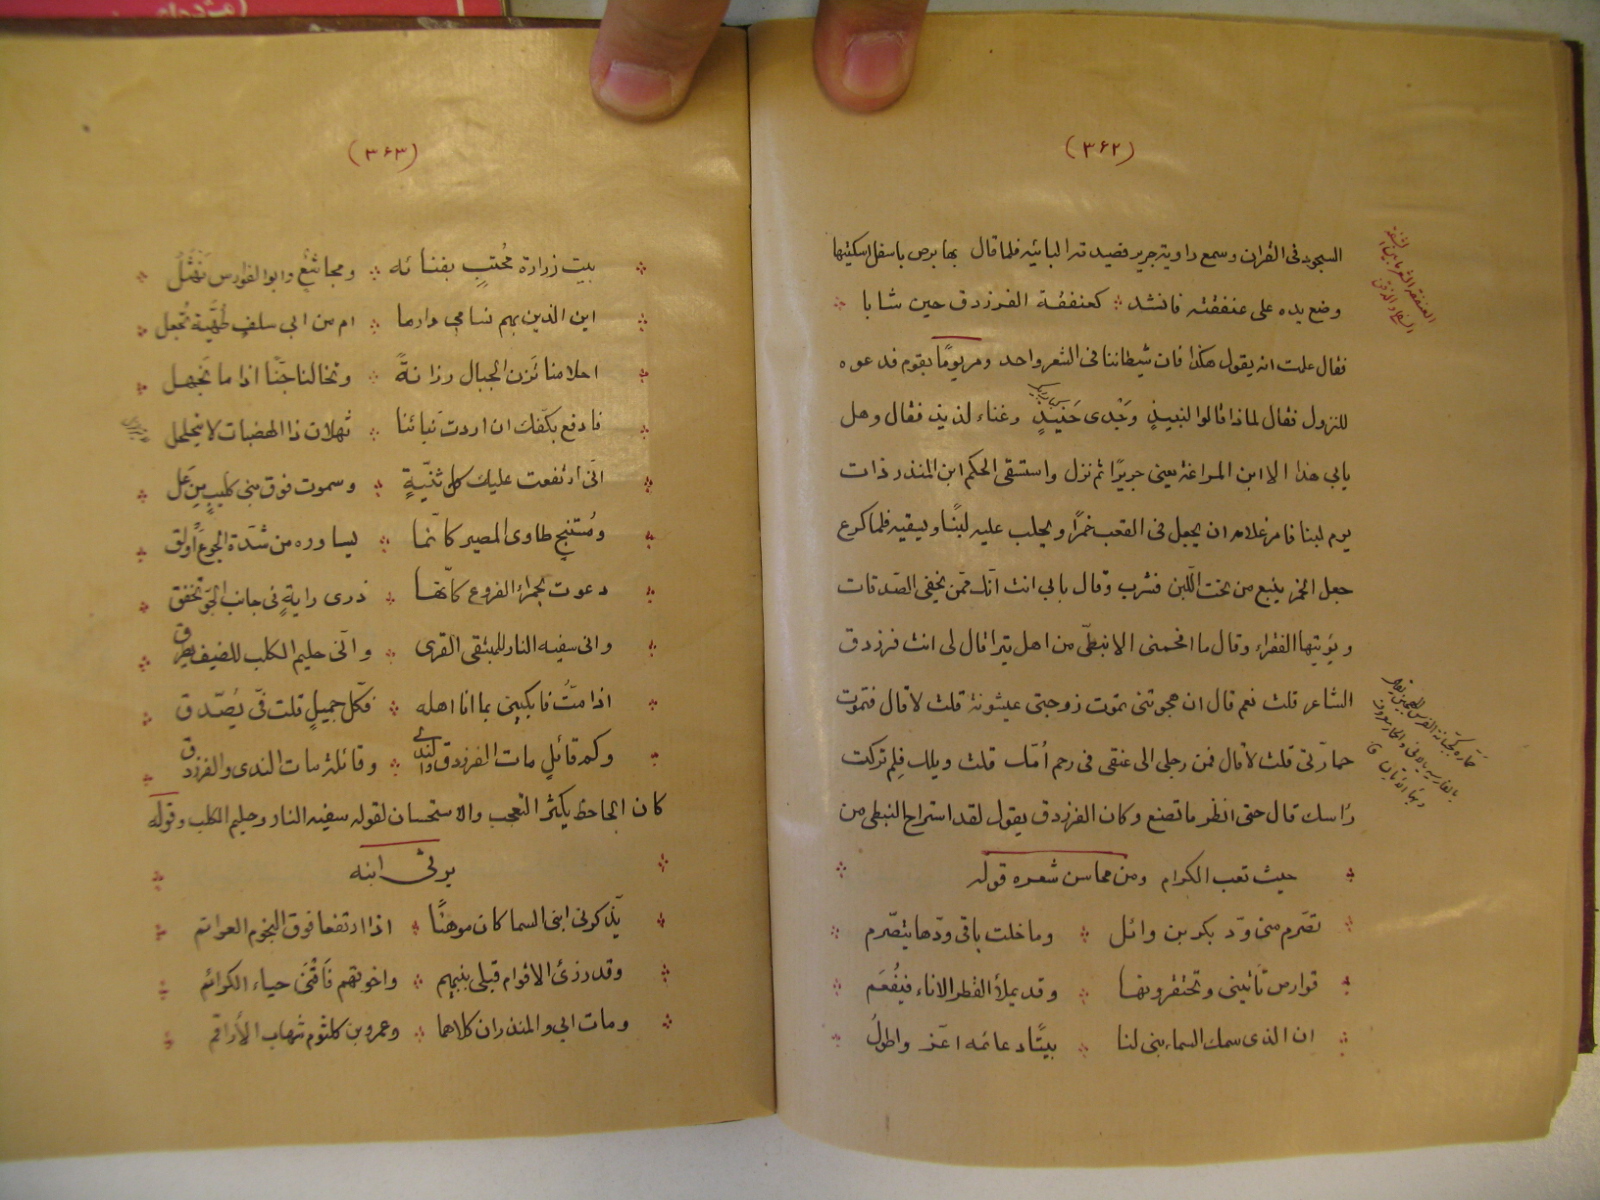 (۳۶۲)
السجود فى القران وسمع راوية جرير قصيدته البائيه فلما قال بها برص باسفل اسكتيها
وضع يده على عنفقته فانشد كعنفقة الفرزدق حين شابا
فقال علمت انه يقول هكذا فان شيطاننا فى الشعر واحد ومر يومًا بقوم فدعوه
للنزول فقال لماذا قالوا النبيذٍ وجدى حَنيذٍ وغناء لذيذ فقال وهل
يابي هذا الا ابن المراغة يعنى جريرًا ثم نزل واستسقى الحكم ابن المنذر ذات
يوم لبنا فامر غلامه ان يجعل فى القعب خمرًا ويحلب عليه لبنًا ويسقيه فلما كرع
جعل الخمر ينبع من تحت اللّبن فشرب وقال بابي انت انّك ممّن يخفى الصّدقات
ويؤتيها الفقراء وقال ما افحمنى الا نبطّى من اهل يترا قال لى انت فرزدق
الشاعر قلت نعم قال ان هجوتنى تموت زوجتى عيشونة قلت لا قال فتموت
حمارتى قلت لا قال فمن رجلى الى عنقى فى رحم امّك قلت ويلك فلِم تركت
راسك قال حتى انظر ما تصنع وكان الفرزدق يقول لقد استراح النبطى من
حيث تعب الكرام ومن محاسن شعره قوله
تصّرم منى ودّ بكر بن وائل وما خلت باقى ودّها يتصّرم
قوارص تاتينى وتحتقرونها وقد يملأ القطر الاناء فيُفعَم
ان الذى سمك السماء بنى لنا بيتًا دعائمه اعّز واطولُ
(۳۶۳)
بيت زرارة مُحتبٍ بفنائه ومجاشعٌ وابو الفوارس نَهْشَلُ
اين الذين بهم تسامي دارما ام من الى سلفى طُهَيّة تُجعل
احلامنا تزن الجبال رزانةً وتخالنا جنّا اذا ما نجهل
فادفع بكّفك ان اردت بنائنا ثهلان ذا الهضبات لا يتحلحل
انّى ارتفعت عليك كل ثنيّةٍ وسموت فوق بنى كليبٍ مِن عَل
ومُستنبح طاوى المصير كانّما يساوره من شدّة الجوع اَولق
دعوت بحمراء الفروع كانّها ذرى رايةٍ فى جانب الجّو تخفق
وانى سفيه النار للمبتغى القرى وانّى حليم الكلب للضيف يطرق
اذا متُّ فابكينى بما انا اهله فكّل جميلٍ قلت فىّ يُصّدق
وكم قائلٍ مات الفرزدق والندى وقائلة مات الندى والفرزدق
كان الجاحظ يكثر التعجب والاستحسان لقوله سفيه النار وحليم الكلب وقوله
يرثى ابنه
يذّكرنى ابنى السما كان موهنًا اذا ارتفعا فوق النجوم العواتم
وقد رزئ الاقوام قبلى بنيهم واخوتهم فَاقْنَى حياء الكرائم
ومات ابي والمنذران كلاهما وعمرو بن كلثوم شهاب الأراقم